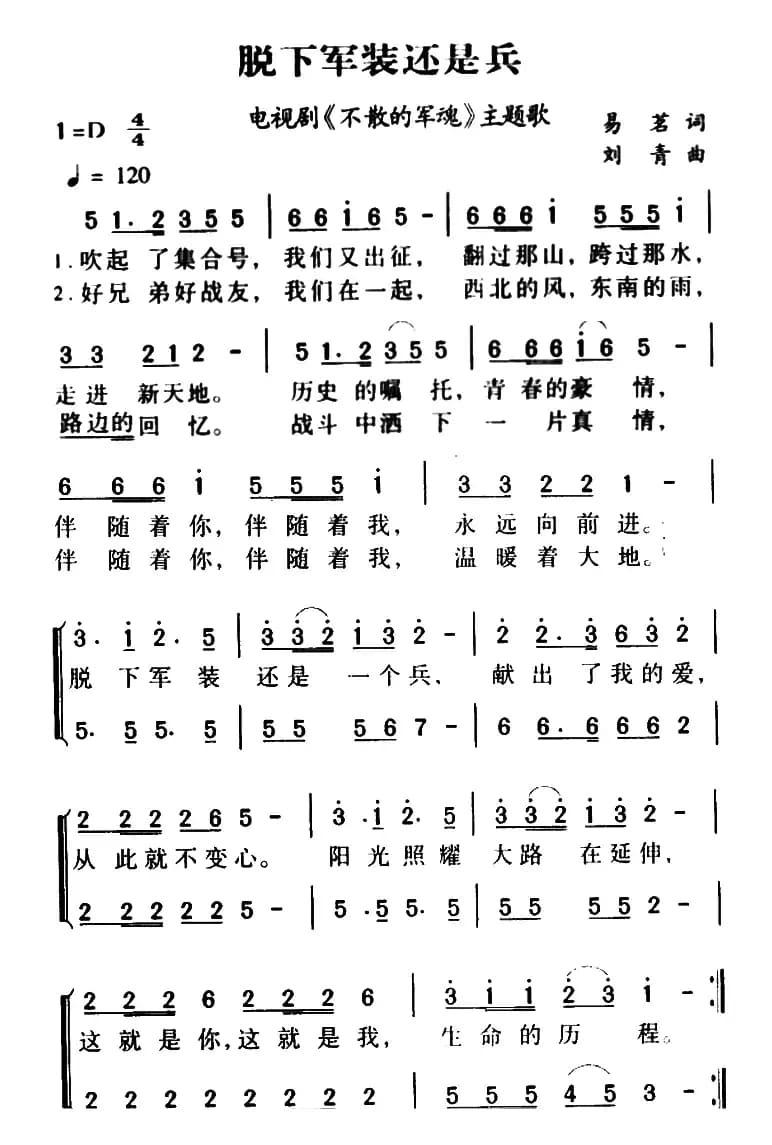 脱下军装还是兵
1=D 4/4 电视剧《不散的军魂》主题歌 易茗词
♩= 120 刘青曲
5 1· 2 3 5 5 | 6 6 i 6 5 - | 6 6 6 i 5 5 5 i |
1.吹起 了集合号，我们又出征， 翻过那山，跨过那水，
2.好兄 弟好战友，我们在一起， 西北的风，东南的雨，
3 3 2 1 2 - | 5 1· 2 3 5 5 | 6 6 6 i 6 5 - |
走进 新天地。 历史 的嘱 托，青 春的豪 情，
路边的回 忆。 战斗 中洒 下 一 片真 情，
6 6 6 i 5 5 5 i | 3 3 2 2 1 - |
伴 随着你，伴随着我， 永远向前进。
伴 随着你，伴随着我， 温暖着大地。
3· i 2· 5 | 3 3 2 i 3 2 - | 2 2· 3 6 3 2 |
脱 下军 装 还是 一个兵， 献 出 了我的爱，
5· 5 5· 5 | 5 5 5 6 7 - | 6 6· 6 6 6 2 |
2 2 2 2 6 5 - | 3 · i 2· 5 | 3 3 2 i 3 2 - |
从 此就不变心。 阳 光照耀 大路 在延伸，
2 2 2 2 2 5 - | 5 · 5 5· 5 | 5 5 5 5 2 - |
2 2 2 6 2 2 2 6 | 3 i i 2 3 i - :||
这就是你，这就是我， 生命的历 程。
2 2 2 2 2 2 2 2 | 5 5 5 4 5 3 - :||